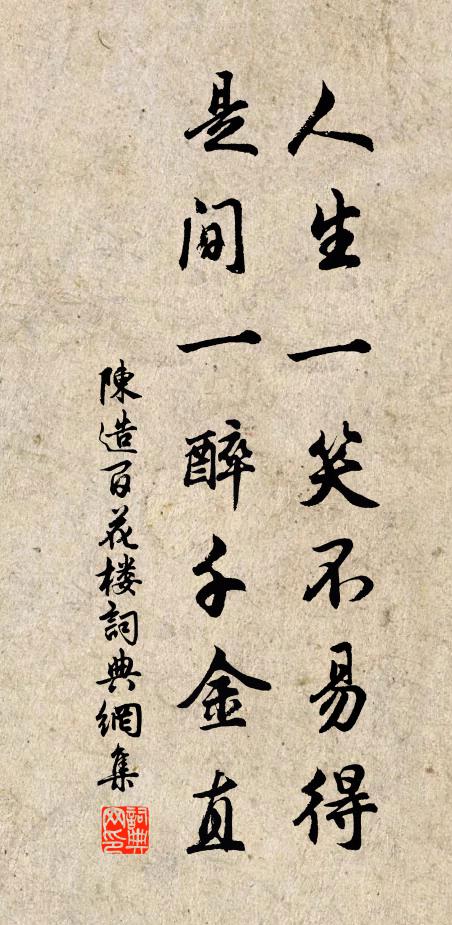 人生一笑不易得
是间一醉千金直
陳造百花楼詞典網集
詞典网印